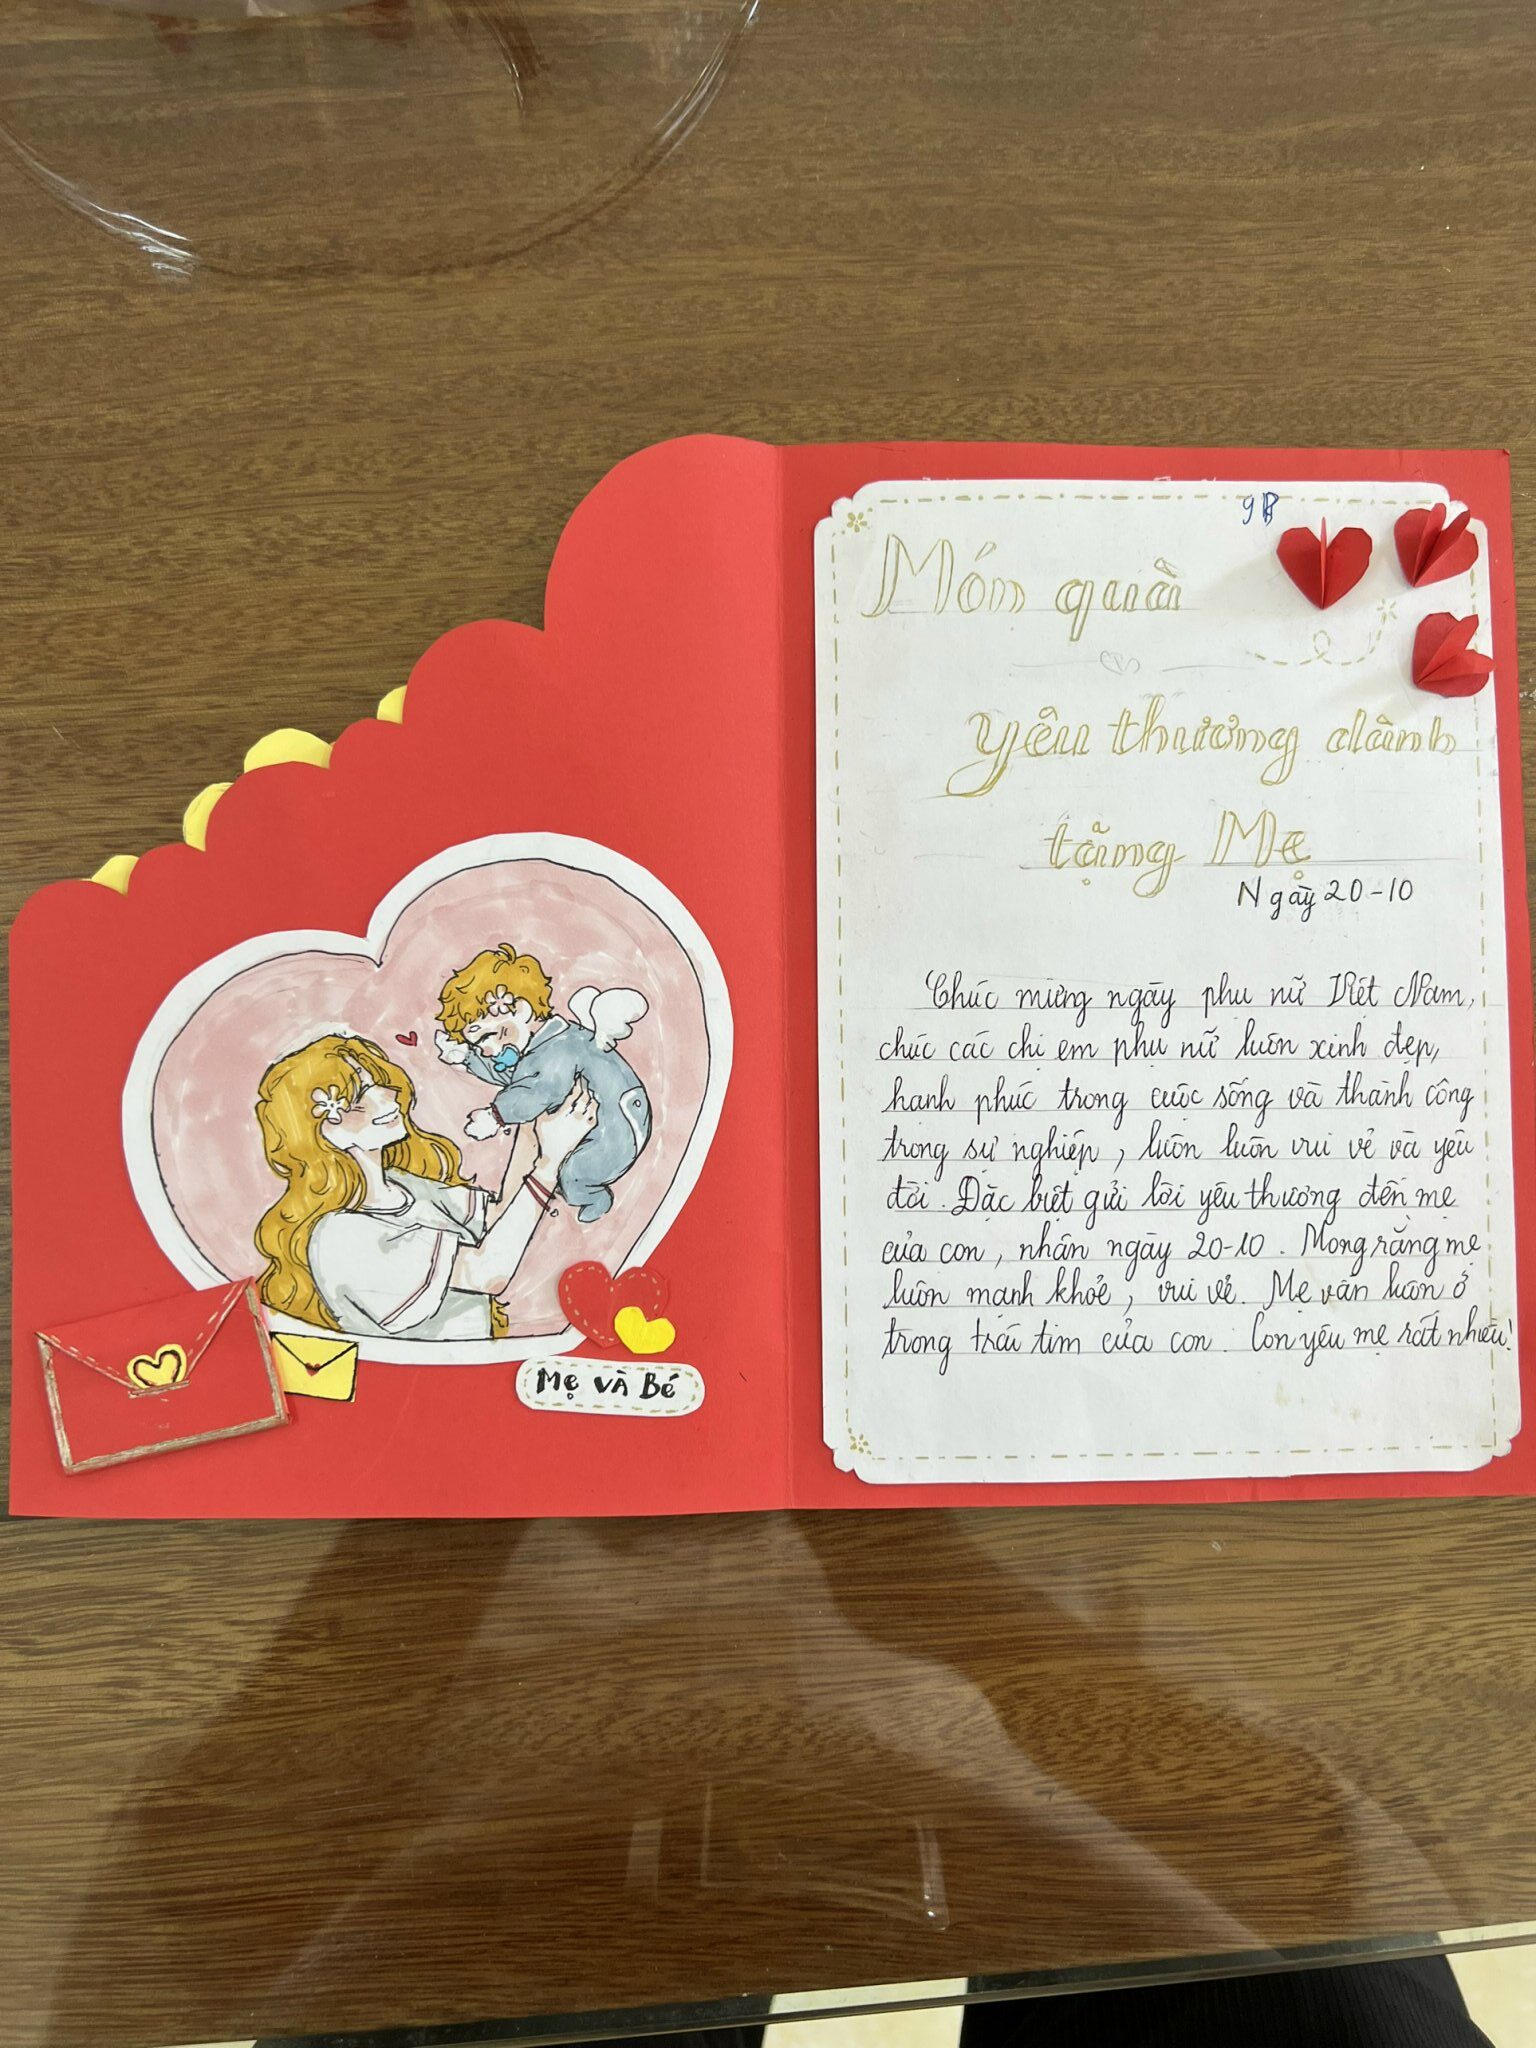 Mẹ và Bé
9B
Món quà
yêu thương dành
tặng Mẹ
Ngày 20-10
Chúc mừng ngày phụ nữ Việt Nam,
chúc các chị em phụ nữ luôn xinh đẹp,
hạnh phúc trong cuộc sống và thành công
trong sự nghiệp, luôn luôn vui vẻ và yêu
đời. Đặc biệt gửi lời yêu thương đến mẹ
của con, nhân ngày 20-10. Mong rằng mẹ
luôn mạnh khỏe, vui vẻ. Mẹ vẫn luôn ở
trong trái tim của con. Con yêu mẹ rất nhiều!